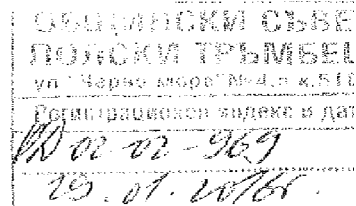 ОБЩИНСКИ СЪВЕ
ПОЛСКИ ТРЪМБЕШ
ул. "Черно море" № 4, п.к. 510
Регистрационен индекс и дат
02-02-969
29.01.2016г.